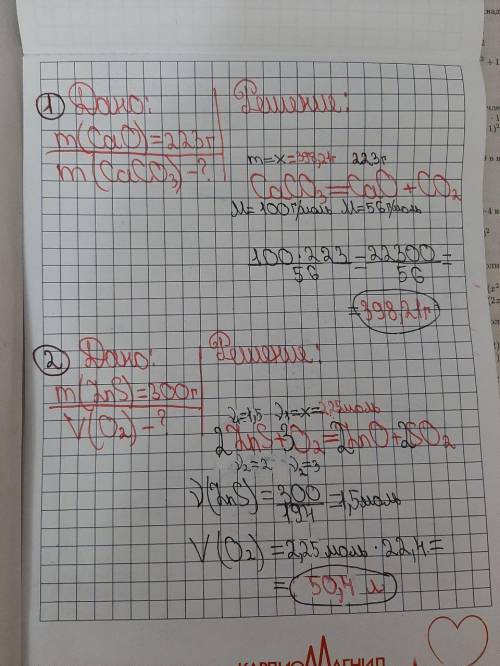 ① Дано:
m(CaO)=223г
m(CaCO₃)-?
Решение:
m=x=398,21г 223г
CaCO₃=CaO+CO₂
M=100г/моль M=56г/моль
100·223/56=22300/56=
=398,21г
② Дано:
m(ZnS)=300г
V(O₂)-?
Решение:
ν₁=1,5 ν₁=x=2,25моль
2ZnS+3O₂=2ZnO+2SO₂
ν₂=2 ν₂=3
ν(ZnS)=300/194=1,5моль
V(O₂)=2,25моль·22,4=
=50,4 л
КАРДИОМАГНИЛ